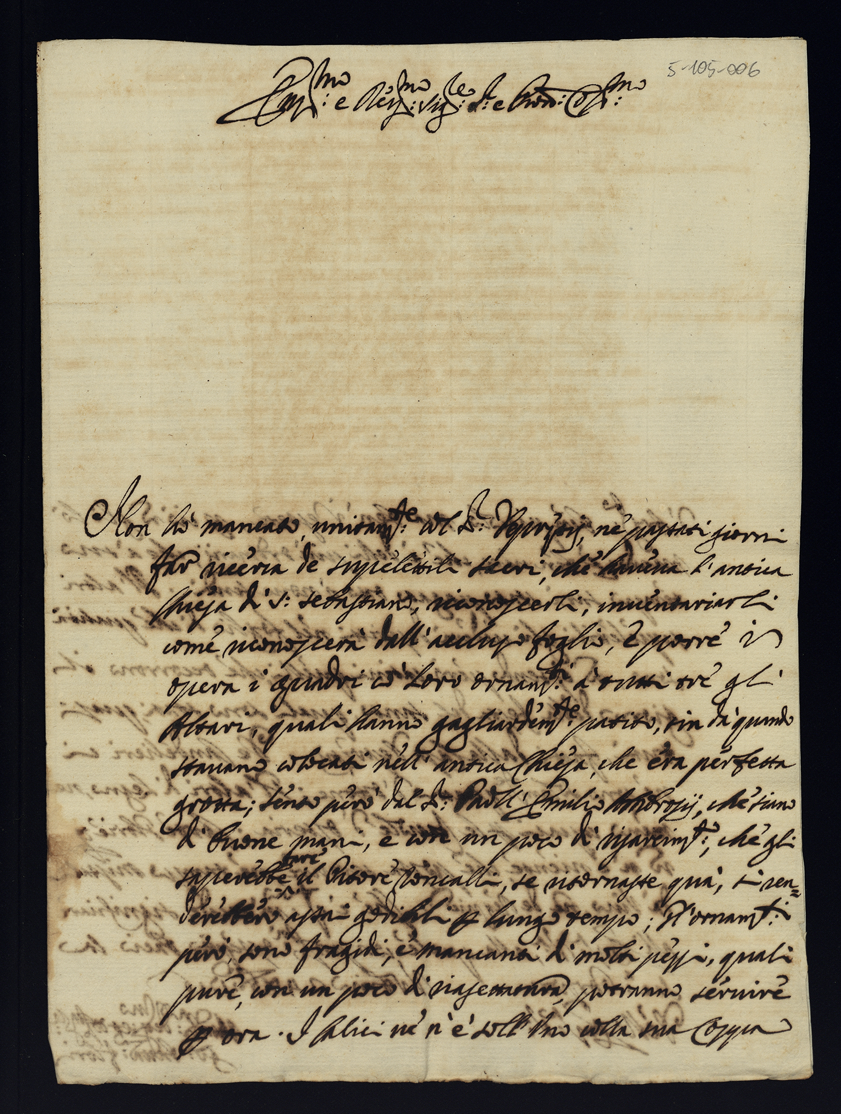 5-105-006
Ill:mo e Rev:mo Sig:re S.r e Pron: Col:mo
Non hò mancato, unitam:te col S.r giorni
far ricerca de supeletili sacri, che haveva l'antica
Chiesa di S: Sebastiano, riconoscerli, inventariarli
come riconoscerà dall'accluso foglio, e porre in
opera i quadri co' loro ornam:ti à tutti trè gl'
Altari, quali hanno gagliardem:te patito, sin da quando
stavano colocati nell'antica Chiesa, che era perfetta
grotta; sento però dal S.r Emilio che siano
di buone mani, e con un poco di che gli
saperebbe fare il Pitore Roncalli, se ritornasse quà, si ren=
derebbero assai godibili p lungo tempo; Gl'ornam:ti
però, sono fragidi, e mancanti di molti pezzi, quali
pure, con un poco di potranno servire
p ora. I Calici ve n'è soll' uno colla sua Coppa